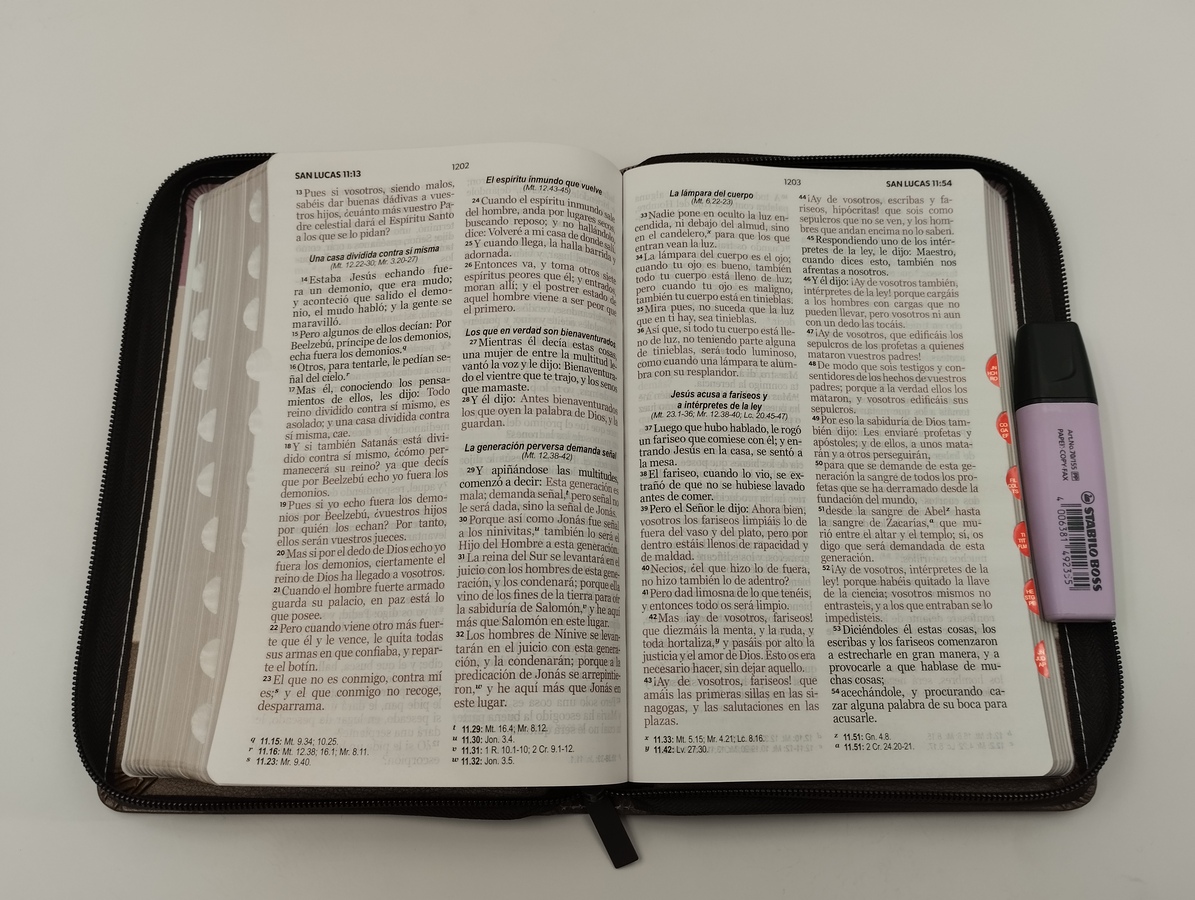 SAN LUCAS 11:13
1202
13 Pues si vosotros, siendo malos,
sabéis dar buenas dádivas a vues-
tros hijos, ¿cuánto más vuestro Pa-
dre celestial dará el Espíritu Santo
a los que se lo pidan?
Una casa dividida contra sí misma
(Mt. 12.22-30; Mr. 3.20-27)
14 Estaba Jesús echando fue-
ra un demonio, que era mudo;
y aconteció que salido el demo-
nio, el mudo habló; y la gente se
maravilló.
15 Pero algunos de ellos decían: Por
Beelzebú, príncipe de los demonios,
echa fuera los demonios.q
16 Otros, para tentarle, le pedían se-
ñal del cielo.r
17 Mas él, conociendo los pensa-
mientos de ellos, les dijo: Todo
reino dividido contra sí mismo, es
asolado; y una casa dividida contra
sí misma, cae.
18 Y si también Satanás está divi-
dido contra sí mismo, ¿cómo per-
manecerá su reino? ya que decís
que por Beelzebú echo yo fuera los
demonios.
19 Pues si yo echo fuera los demo-
nios por Beelzebú, ¿vuestros hijos
por quién los echan? Por tanto,
ellos serán vuestros jueces.
20 Mas si por el dedo de Dios echo yo
fuera los demonios, ciertamente el
reino de Dios ha llegado a vosotros.
21 Cuando el hombre fuerte armado
guarda su palacio, en paz está lo
que posee.
22 Pero cuando viene otro más fuer-
te que él y le vence, le quita todas
sus armas en que confiaba, y repar-
te el botín.
23 El que no es conmigo, contra mí
es;s y el que conmigo no recoge,
desparrama.
q 11.15: Mt. 9.34; 10.25.
r 11.16: Mt. 12.38; 16.1; Mr. 8.11.
s 11.23: Mr. 9.40.
El espíritu inmundo que vuelve
(Mt. 12.43-45)
24 Cuando el espíritu inmundo sale
del hombre, anda por lugares secos,
buscando reposo; y no hallándolo,
dice: Volveré a mi casa de donde salí.
25 Y cuando llega, la halla barrida y
adornada.
26 Entonces va, y toma otros siete
espíritus peores que él; y entrados,
moran allí; y el postrer estado de
aquel hombre viene a ser peor que
el primero.
Los que en verdad son bienaventurados
27 Mientras él decía estas cosas,
una mujer de entre la multitud le-
vantó la voz y le dijo: Bienaventura-
do el vientre que te trajo, y los senos
que mamaste.
28 Y él dijo: Antes bienaventurados
los que oyen la palabra de Dios, y la
guardan.
La generación perversa demanda señal
(Mt. 12.38-42)
29 Y apiñándose las multitudes,
comenzó a decir: Esta generación es
mala; demanda señal,t pero señal no
le será dada, sino la señal de Jonás.
30 Porque así como Jonás fue señal
a los ninivitas,u también lo será el
Hijo del Hombre a esta generación.
31 La reina del Sur se levantará en el
juicio con los hombres de esta gene-
ración, y los condenará; porque ella
vino de los fines de la tierra para oír
la sabiduría de Salomón,v y he aquí
más que Salomón en este lugar.
32 Los hombres de Nínive se levan-
tarán en el juicio con esta genera-
ción, y la condenarán; porque a la
predicación de Jonás se arrepintie-
ron,w y he aquí más que Jonás en
este lugar.
t 11.29: Mt. 16.4; Mr. 8.12.
u 11.30: Jon. 3.4.
v 11.31: 1 R. 10.1-10; 2 Cr. 9.1-12.
w 11.32: Jon. 3.5.
1203
SAN LUCAS 11:54
La lámpara del cuerpo
(Mt. 6.22-23)
33 Nadie pone en oculto la luz en-
cendida, ni debajo del almud, sino
en el candelero,x para que los que
entran vean la luz.
34 La lámpara del cuerpo es el ojo;
cuando tu ojo es bueno, también
todo tu cuerpo está lleno de luz;
pero cuando tu ojo es maligno,
también tu cuerpo está en tinieblas.
35 Mira pues, no suceda que la luz
que en ti hay, sea tinieblas.
36 Así que, si todo tu cuerpo está lle-
no de luz, no teniendo parte alguna
de tinieblas, será todo luminoso,
como cuando una lámpara te alum-
bra con su resplandor.
Jesús acusa a fariseos y
a intérpretes de la ley
(Mt. 23.1-36; Mr. 12.38-40; Lc. 20.45-47)
37 Luego que hubo hablado, le rogó
un fariseo que comiese con él; y en-
trando Jesús en la casa, se sentó a
la mesa.
38 El fariseo, cuando lo vio, se ex-
trañó de que no se hubiese lavado
antes de comer.
39 Pero el Señor le dijo: Ahora bien,
vosotros los fariseos limpiáis lo de
fuera del vaso y del plato, pero por
dentro estáis llenos de rapacidad y
de maldad.
40 Necios, ¿el que hizo lo de fuera,
no hizo también lo de adentro?
41 Pero dad limosna de lo que tenéis,
y entonces todo os será limpio.
42 Mas ¡ay de vosotros, fariseos!
que diezmáis la menta, y la ruda, y
toda hortaliza,y y pasáis por alto la
justicia y el amor de Dios. Esto os era
necesario hacer, sin dejar aquello.
43 ¡Ay de vosotros, fariseos! que
amáis las primeras sillas en las si-
nagogas, y las salutaciones en las
plazas.
x 11.33: Mt. 5.15; Mr. 4.21; Lc. 8.16.
y 11.42: Lv. 27.30.
44 ¡Ay de vosotros, escribas y fa-
riseos, hipócritas! que sois como
sepulcros que no se ven, y los hom-
bres que andan encima no lo saben.
45 Respondiendo uno de los intér-
pretes de la ley, le dijo: Maestro,
cuando dices esto, también nos
afrentas a nosotros.
46 Y él dijo: ¡Ay de vosotros también,
intérpretes de la ley! porque cargáis
a los hombres con cargas que no
pueden llevar, pero vosotros ni aun
con un dedo las tocáis.
47 ¡Ay de vosotros, que edificáis los
sepulcros de los profetas a quienes
mataron vuestros padres!
48 De modo que sois testigos y con-
sentidores de los hechos de vuestros
padres; porque a la verdad ellos los
mataron, y vosotros edificáis sus
sepulcros.
49 Por eso la sabiduría de Dios tam-
bién dijo: Les enviaré profetas y
apóstoles; y de ellos, a unos mata-
rán y a otros perseguirán,
50 para que se demande de esta ge-
neración la sangre de todos los pro-
fetas que se ha derramado desde la
fundación del mundo,
51 desde la sangre de Abelz hasta
la sangre de Zacarías,a que mu-
rió entre el altar y el templo; sí, os
digo que será demandada de esta
generación.
52 ¡Ay de vosotros, intérpretes de la
ley! porque habéis quitado la llave
de la ciencia; vosotros mismos no
entrasteis, y a los que entraban se lo
impedisteis.
53 Diciéndoles él estas cosas, los
escribas y los fariseos comenzaron
a estrecharle en gran manera, y a
provocarle a que hablase de mu-
chas cosas;
54 acechándole, y procurando ca-
zar alguna palabra de su boca para
acusarle.
z 11.51: Gn. 4.8.
a 11.51: 2 Cr. 24.20-21.
STABILO BOSS
Art.No. 70/155
PAPER COPY FAX